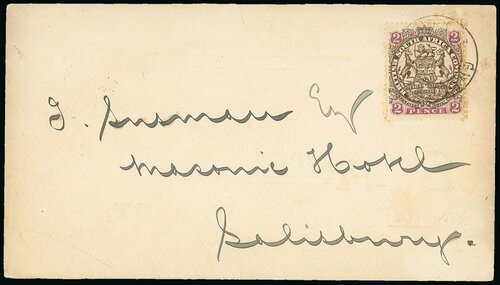 2 2
BRITISH SOUTH AFRICA COMPANY
2 PENCE 2
J. Susman Esq
Masonic Hotel
Salisbury.